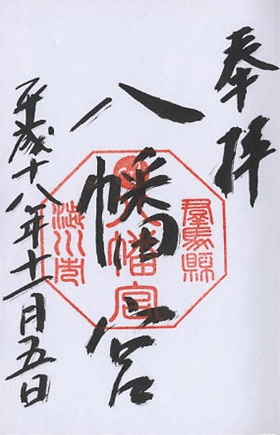 奉拝
八幡宮
平成十八年十一月五日
群馬縣
八幡宮
渋川市